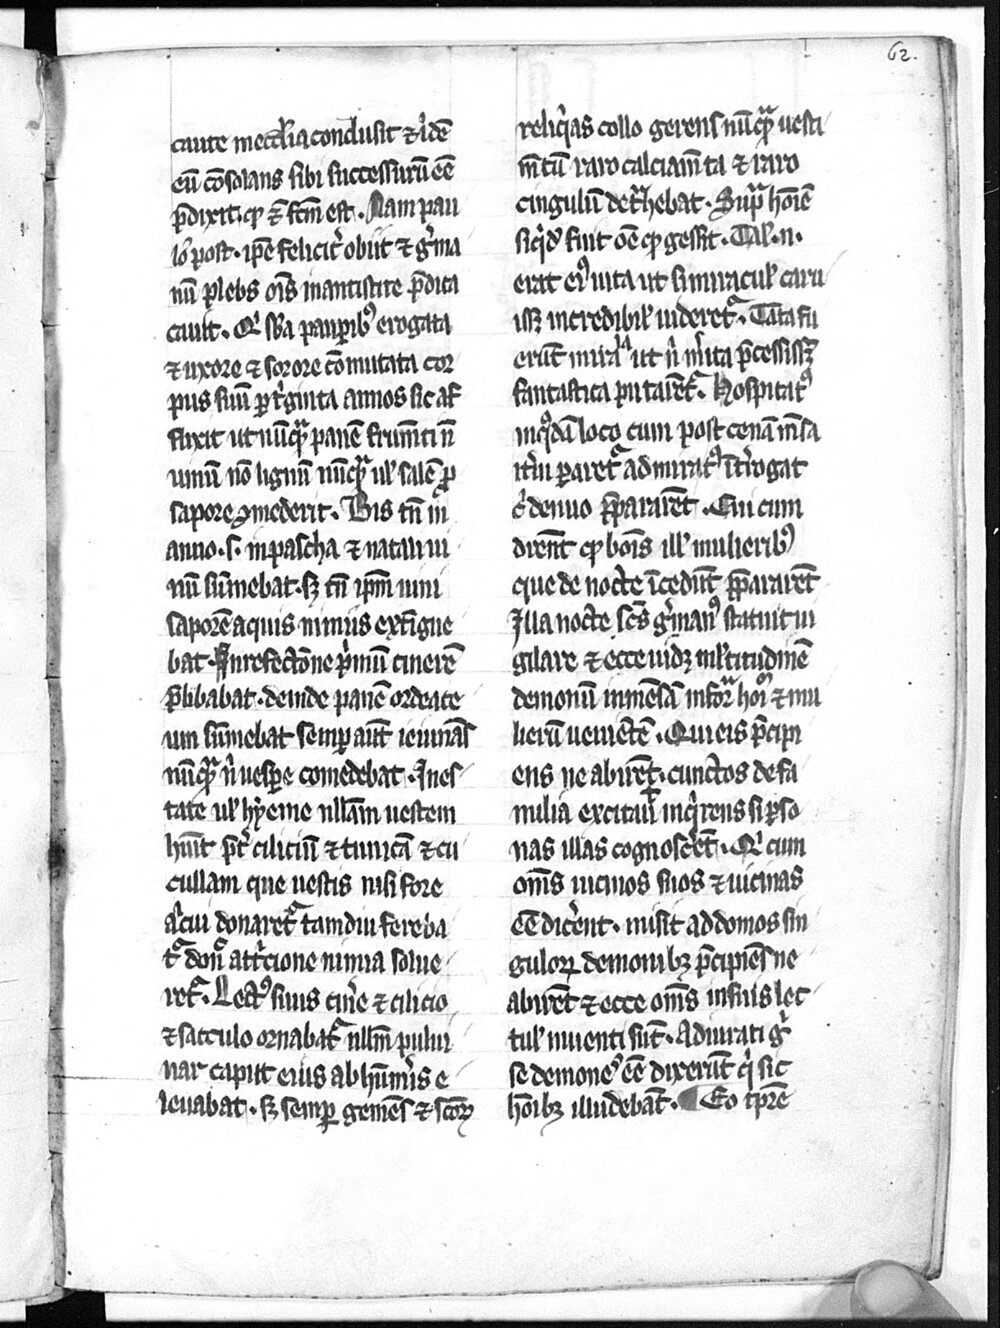 62.
caute mecclīa conclusit ⁊ ídē
eū cōsolans sibi successurū eē
p̄dixit. qͥ ⁊ fcm̄ est. Nam pau
lo post. ip̄e felicit̾ obiit ⁊ g̾ma
nū plebs om̄s in antistite p̄dica
auit. Qͥ sb̄a paupib⁹ erogata
⁊ uxore ⁊ sorore cōmutata cor
pus suū p t̾ginta annos sic af
flixit ut nūqᷓ panē frum̄ti n̄
uinū nō ligum nūqᷓ ul̾ salē ꝓ
sapore ꝯmederit. Bis tn̄ in
anno .s. in pascha ⁊ natali ui
nū sūmebat. sꝫ tn̄ ip̄m uini
saporē aquis nimiis extīgue
bat. In refectōne p̾mū cinerē
p̄libabat. deinde panē ordeace
um sūmebat semꝑ aūt ieiunās
nūqᷓ n̄ uesꝑe comedebat. In es
tate ul̾ hyeme nullam uestem
hūit p̄t̾ ciliciū ⁊ tunicā ⁊ cu
cullam que uestis nisi fore
alicui donaretᷣ tamdiu fereba
tᷣ don̄ att̾cione nimia solue
retᷣ. Lect⁹ suus cin̾e ⁊ cilicio
⁊ sacculo ornabatᷣ nllm̄ pului
nar caput eius ab hūm̾is e
leuabat. sꝫ semꝑ gemēs ⁊ sc̄oꝝ
reliq̾as collo gerens nūqᷓ uesti
m̄tū raro calciam̄ta ⁊ raro
cingulū det̾hebat. Supᷓ hoīē
siq̾dē fuit oē qͦ gessit. Tal̾ .n.
erat ei⁹ uita ut si miracul̾ caru
isꝫ incredibil̾ uideretᷣ. Tāta fu
erūt mirᷓla ut n̄ m̾ita p̄cessissꝫ
fantastica putarētᷣ. Hospitat⁹
in q⁹dā loco cum post cenā m̄sa
it̾ū pararetᷣ admirat⁹ īt̾rogat
c̾ denuo p̄pararēt. Cui cum
dicēnt qͦ boīs ill̾ mulierib⁹
que de nocte īcedūt p̄pararēt
Illa nocte sc̄s g̾man⁹ statuit ui
gilare ⁊ ecce uidꝫ ml̾titudinē
demonū inmēsā in forᷓ hoīm ⁊ mu
lierū uenietē. Qui eis p̄cipi
ens ne abirēt. cunctos de fa
milia excitauͥ inq̾rens si ꝑso
nas illas cognoscēt. Qͥ cum
om̄s uicinos suos ⁊ uicinas
eē dic̾ent. misit ad domos sin
guloꝝ demonibꝫ p̄cipiēs ne
abirēt ⁊ ecce om̄s in suis lec
tul̾ inuenti sūt. Adiurati g̾
se demone⁹ eē dixerūt qͥ sic
hoībꝫ illudebāt. Eo tp̄re